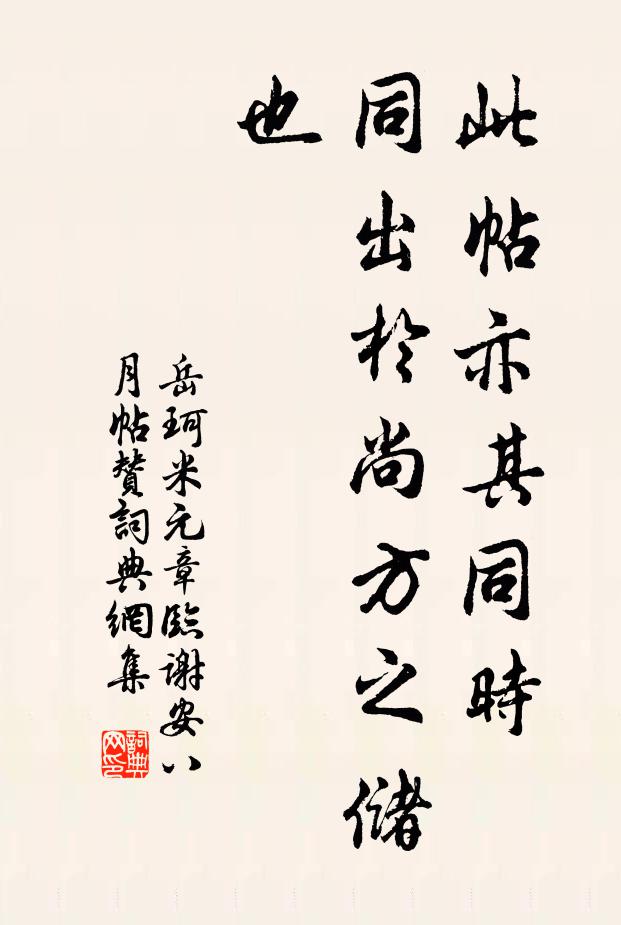 此帖亦其同時
同出於尚方之儲
也
岳珂米元章臨謝安八
月帖贊詞典網集
詞典
网印